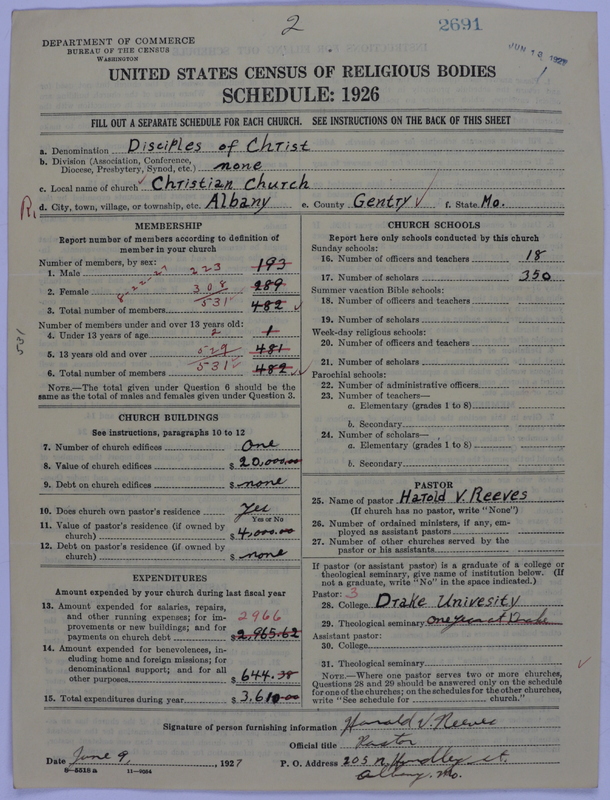 2
2691
DEPARTMENT OF COMMERCE
BUREAU OF THE CENSUS
WASHINGTON
JUN 13 1927
UNITED STATES CENSUS OF RELIGIOUS BODIES
SCHEDULE: 1926
FILL OUT A SEPARATE SCHEDULE FOR EACH CHURCH. SEE INSTRUCTIONS ON THE BACK OF THIS SHEET
a. Denomination Disciples of Christ
b. Division (Association, Conference,
Diocese, Presbytery, Synod, etc.) none
c. Local name of church Christian Church
R, d. City, town, village, or township, etc. Albany e. County Gentry f. State Mo.
MEMBERSHIP
Report number of members according to definition of
member in your church
Number of members, by sex:
1. Male 223 193
2. Female 308 289
8-22-27
3. Total number of members 531 482
Number of members under and over 13 years old:
4. Under 13 years of age 2 1
5. 13 years old and over 529 481
6. Total number of members 531 482
531
NOTE.—The total given under Question 6 should be the
same as the total of males and females given under Question 3.
CHURCH BUILDINGS
See instructions, paragraphs 10 to 12
7. Number of church edifices One
8. Value of church edifices $ 20,000.00
9. Debt on church edifices $ none
10. Does church own pastor's residence yes
Yes or No
11. Value of pastor's residence (if owned by
church) $ 4,000.00
12. Debt on pastor's residence (if owned by
church) $ none
EXPENDITURES
Amount expended by your church during last fiscal year
13. Amount expended for salaries, repairs,
and other running expenses; for im-
provements or new buildings; and for
payments on church debt 2966 $ 2,965.62
14. Amount expended for benevolences, in-
cluding home and foreign missions; for
denominational support; and for all
other purposes $ 644.38
15. Total expenditures during year $ 3,610.00
CHURCH SCHOOLS
Report here only schools conducted by this church
Sunday schools:
16. Number of officers and teachers 18
17. Number of scholars 350
Summer vacation Bible schools:
18. Number of officers and teachers
19. Number of scholars
Week-day religious schools:
20. Number of officers and teachers
21. Number of scholars
Parochial schools:
22. Number of administrative officers
23. Number of teachers—
a. Elementary (grades 1 to 8)
b. Secondary
24. Number of scholars—
a. Elementary (grades 1 to 8)
b. Secondary
PASTOR
25. Name of pastor Harold V. Reeves
(If church has no pastor, write "None")
26. Number of ordained ministers, if any, em-
ployed as assistant pastors
27. Number of other churches served by the
pastor or his assistants
If pastor (or assistant pastor) is a graduate of a college or
theological seminary, give name of institution below. (If
not a graduate, write "No" in the space indicated.)
Pastor: 3
28. College Drake Univesity
29. Theological seminary one year at Drake
Assistant pastor:
30. College
31. Theological seminary
NOTE.—Where one pastor serves two or more churches,
Questions 28 and 29 should be answered only on the schedule
for one of the churches; on the schedules for the other churches,
write "See schedule for church."
Signature of person furnishing information Harold V. Reeves
Official title Pastor
Date June 9, 1927 P. O. Address 205 N. Hundley st.
Albany. Mo.
8-5518 a 11-9264